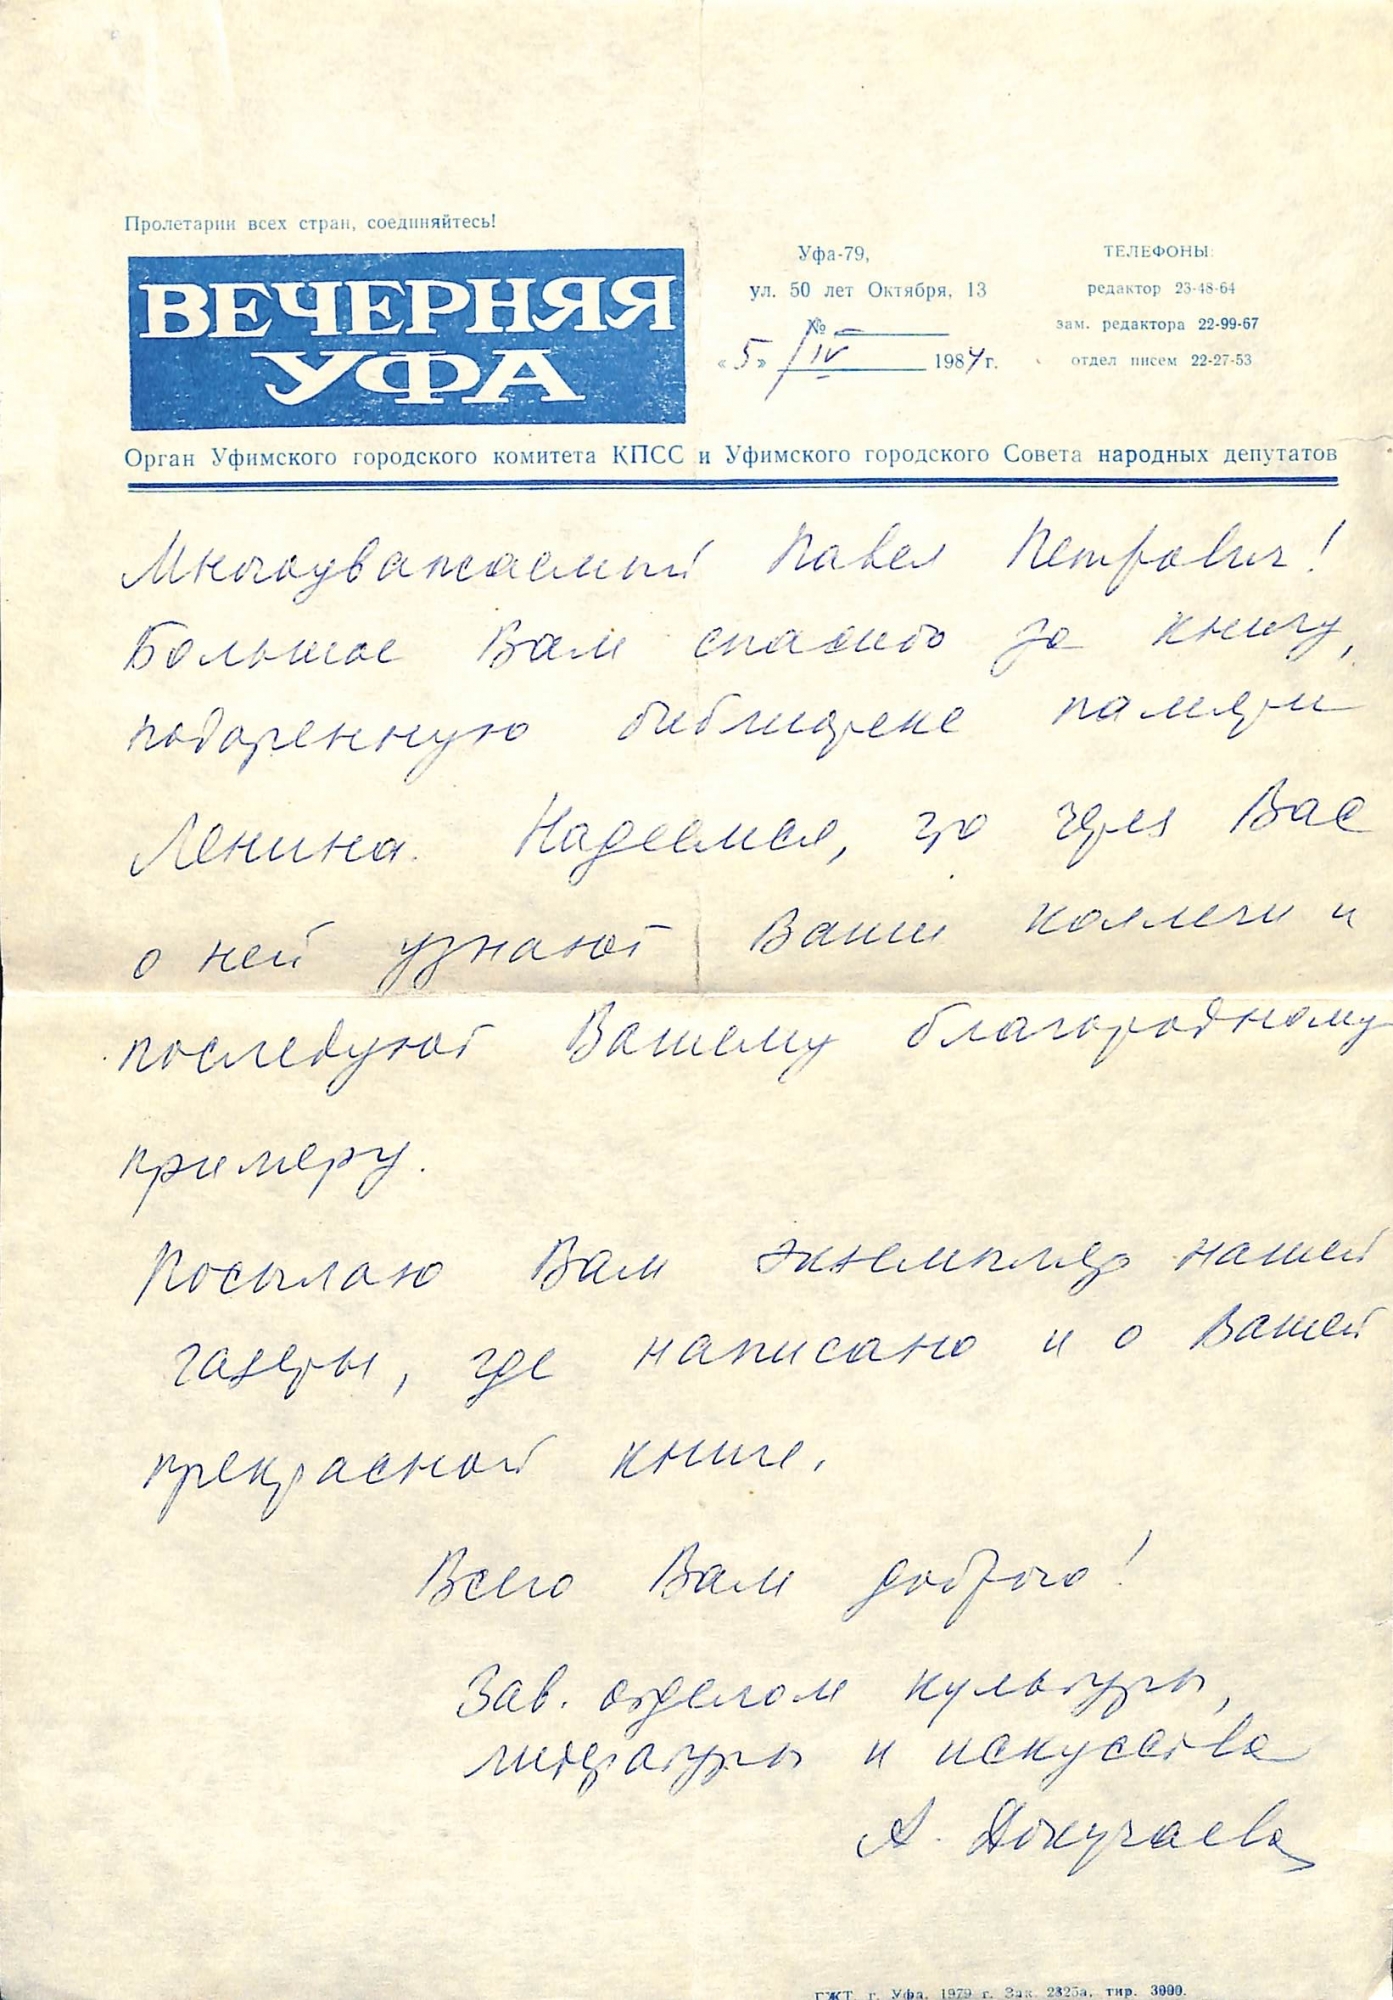 Пролетарии всех стран, соединяйтесь!
ВЕЧЕРНЯЯ
УФА
Уфа-79,
ул. 50 лет Октября, 13
№ —
«5» / IV 1984 г.
ТЕЛЕФОНЫ:
редактор 23-48-64
зам. редактора 22-99-67
отдел писем 22-27-53
Орган Уфимского городского комитета КПСС и Уфимского городского Совета народных депутатов
Многоуважаемый Павел Петрович!
Большое Вам спасибо за книгу,
подаренную библиотеке памяти
Ленина. Надеемся, что через Вас
о ней узнают Ваши коллеги и
последуют Вашему благородному
примеру.
Посылаю Вам экземпляр нашей
газеты, где написано и о Вашей
прекрасной книге.
Всего Вам доброго!
Зав. отделом культуры,
литературы и искусства
А. Докучаева
ГЖТ. г. Уфа. 1979 г. Зак. 2825а. тир. 3000.